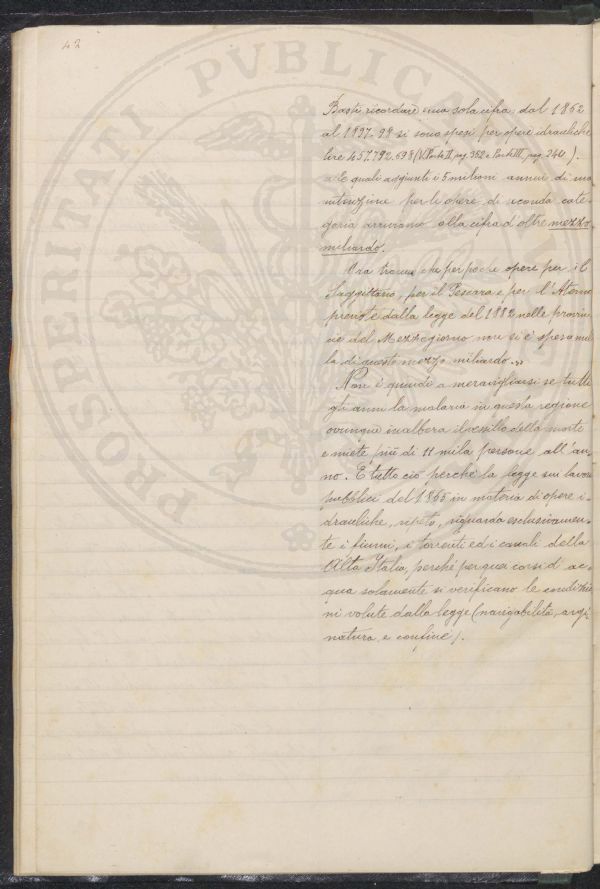 42
PROSPERITATI PVBLICAE
Basti ricordare una sola cifra: dal 1862
al 1897-98 si sono spesi per opere idrauliche
lire 457.792.698 (V. Parte II, pag. 382 e Parte III, pag. 244).
"Ee quali aggiunti i 5 milioni annui di ma
nutenzione per le opere di seconda cate-
goria arrivano alla cifra d'oltre mezzo
miliardo.
Ora tranne che per poche opere per il
Saggittario, per il Pescara e per l'Aterno
previste dalla legge del 1882 nelle provin
cie del Mezzogiorno non si è speso nul
la di questo mezzo miliardo."
Non è quindi a meravigliarsi se tutti
gli anni la malaria in questa regione
ovunque inalbera il vessillo della morte
e miete più di 11 mila persone all'an-
no. E tutto ciò perché la legge sui lavori
pubblici del 1865 in materia di opere i-
drauliche, ripeto, riguarda esclusivamen-
te i fiumi, i torrenti ed i canali della
Alta Italia, perché per quei corsi d'ac-
qua solamente si verificano le condizio
ni volute dalla legge (navigabilità, argi
natura, e confine).